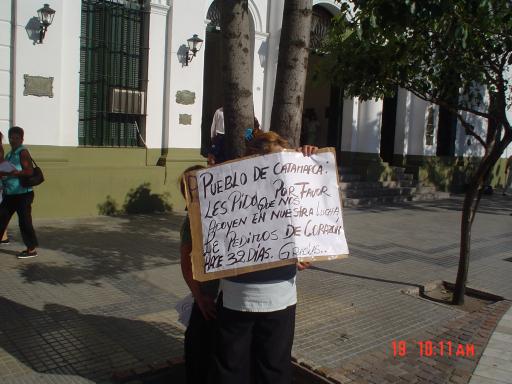 PUEBLO DE CATAMARCA.
LES PIDO POR FAVOR
QUE NOS
APOYEN EN NUESTRA LUCHA
SE PEDIMOS DE CORAZON
HACE 32 DIAS. GRACIAS..
19 10:11AM